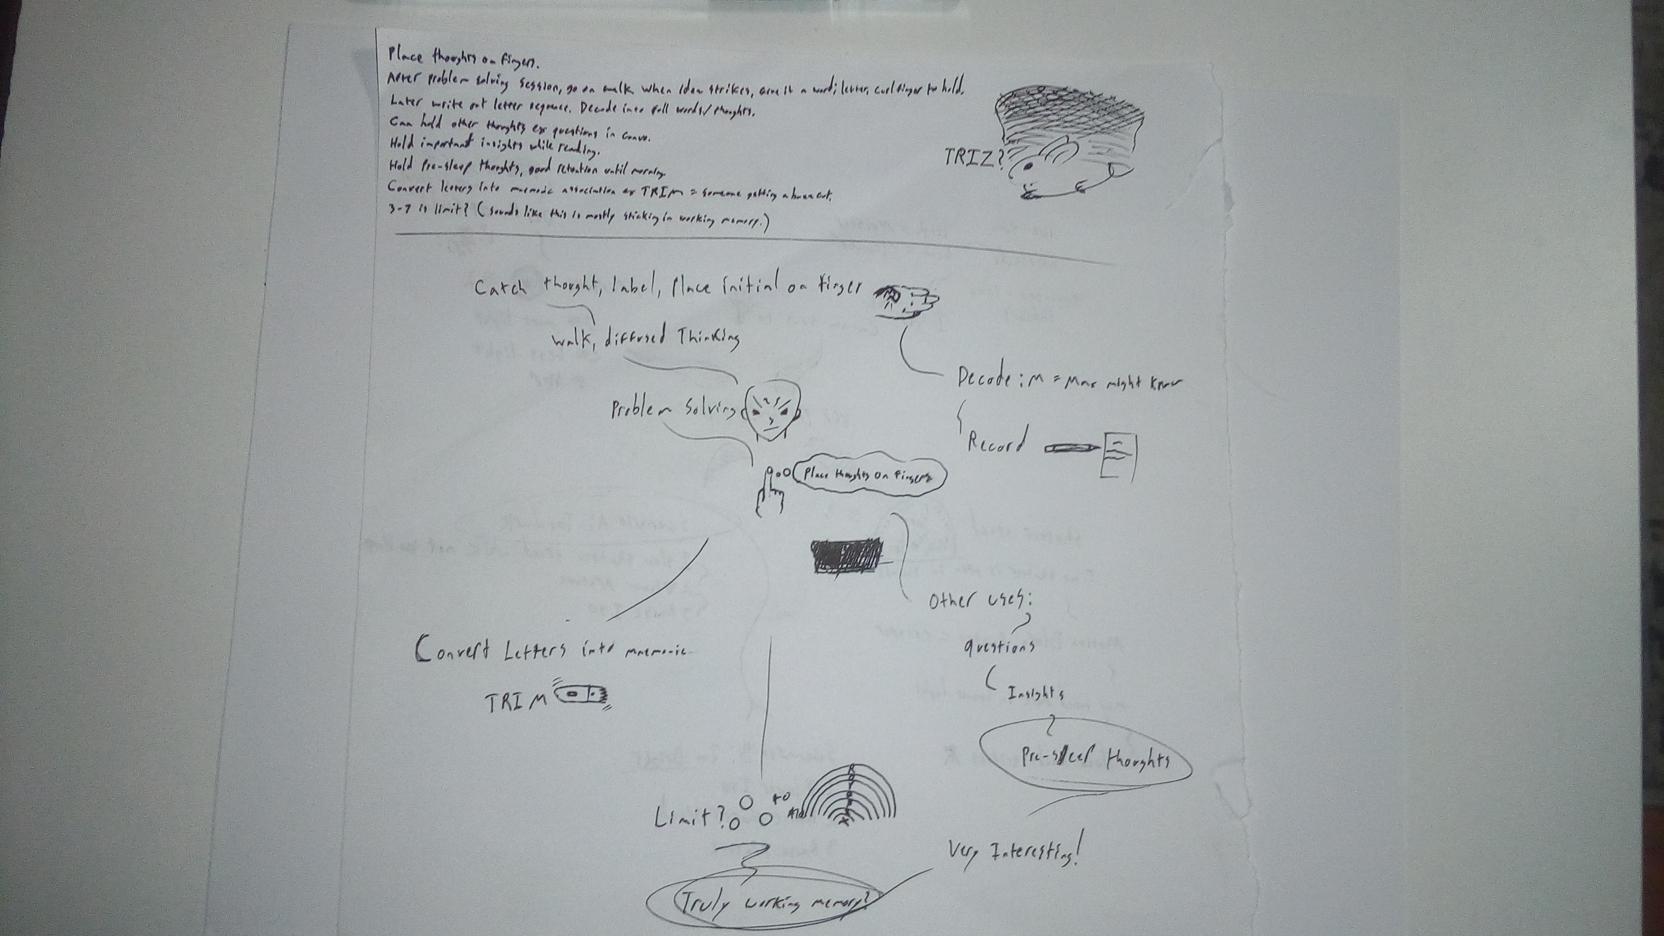 Place thoughts on fingers.
After problem solving session, go on walk when idea strikes, give it a word; letter, curl finger to hold.
Later write out letter sequence. Decode into full words/thoughts.
Can hold other thoughts ex questions in convo.
Hold important insights while reading.
Hold Pre-sleep thoughts, good retention until morning.
Convert letters into mnemonic association ex TRIM = someone getting a
3-7 is limit? (sounds like this is mostly sticking in working memory.)
TRIZ?
Catch thought, label, Place initial on finger
walk, diffused Thinking
Problem Solving
Decode: M = Max might know
Record
Place thoughts on Fingers
Other uses:
questions
Insights
Pre-sleep thoughts
Very Interesting!
Convert Letters into mnemonic
TRIM
Limit?
to
Truly working memory?